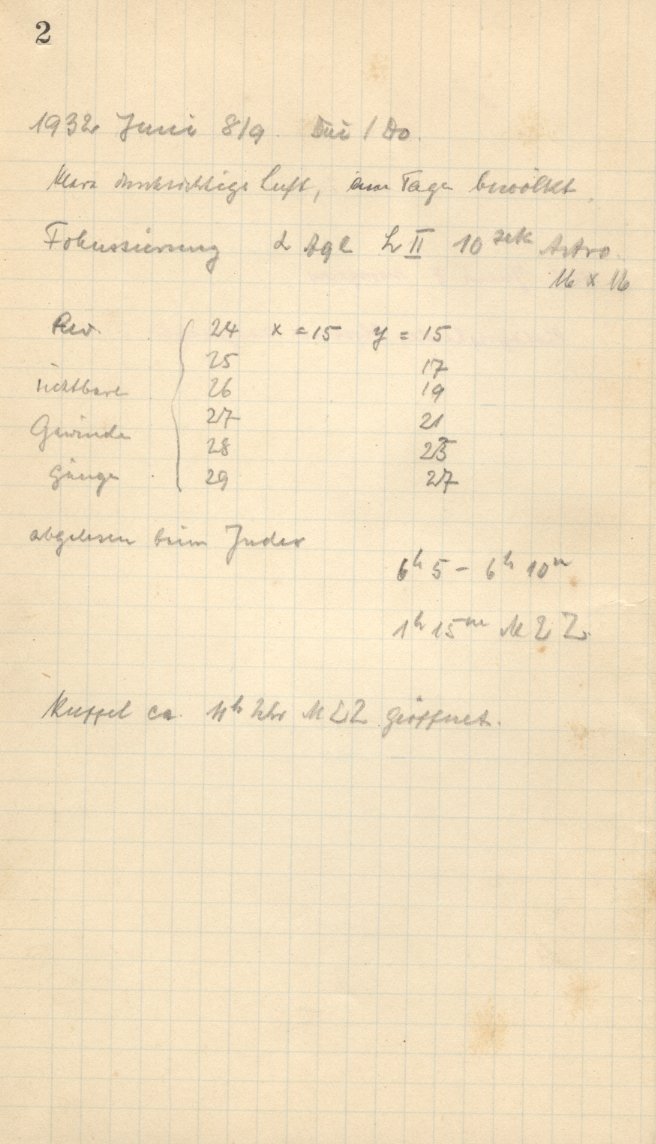 2
1932 Juni 8/9. Mi / Do.
Klare durchsichtige Luft, am Tage bewölkt.
Fokussierung α Aql L II 10 sek Astro.
16 x 16
Rev. 24 x = 15 y = 15
25 17
sichtbare 26 19
27 21
Gewinde 28 25
gänge 29 27
abgelesen beim Index
6h 5 - 6h 10m
1h 15m M E Z.
Kuppel ca. 11h Uhr MEZ geöffnet.